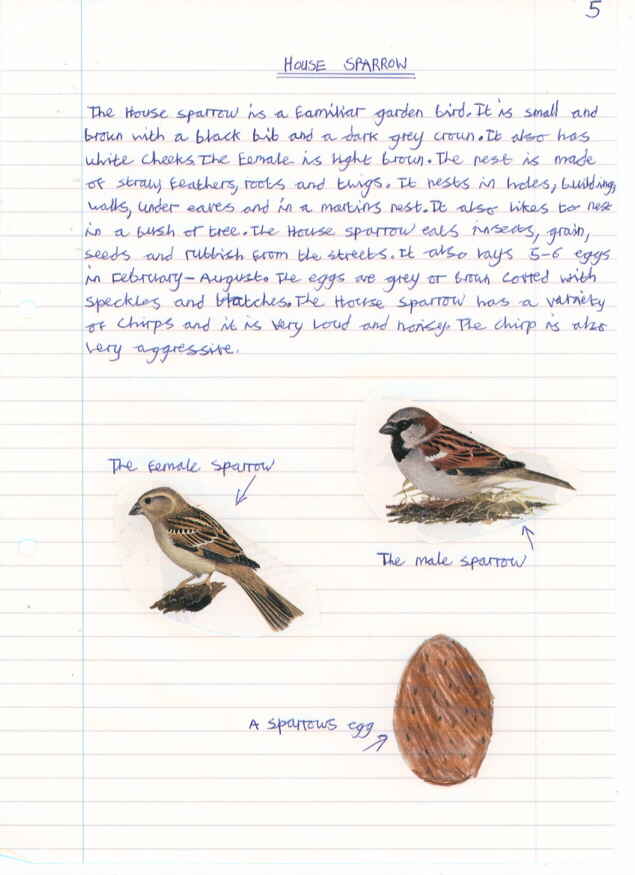 5
HOUSE SPARROW
The House sparrow is a familiar garden bird. It is small and
brown with a black bib and a dark grey crown. It also has
white cheeks. The female is light brown. The nest is made
of straw, feathers, roots and twigs. It nests in holes, building,
walls, under eaves and in a martins nest. It also likes to nest
in a bush or tree. The House sparrow eats insects, grain,
seeds and rubbish from the streets. It also lays 5-6 eggs
in February - August. The eggs are grey or brown cotted with
speckles and blatches. The House sparrow has a variety
of chirps and it is very loud and noisy. The chirp is also
very aggressive.
The female sparrow
The male sparrow
A sparrows egg